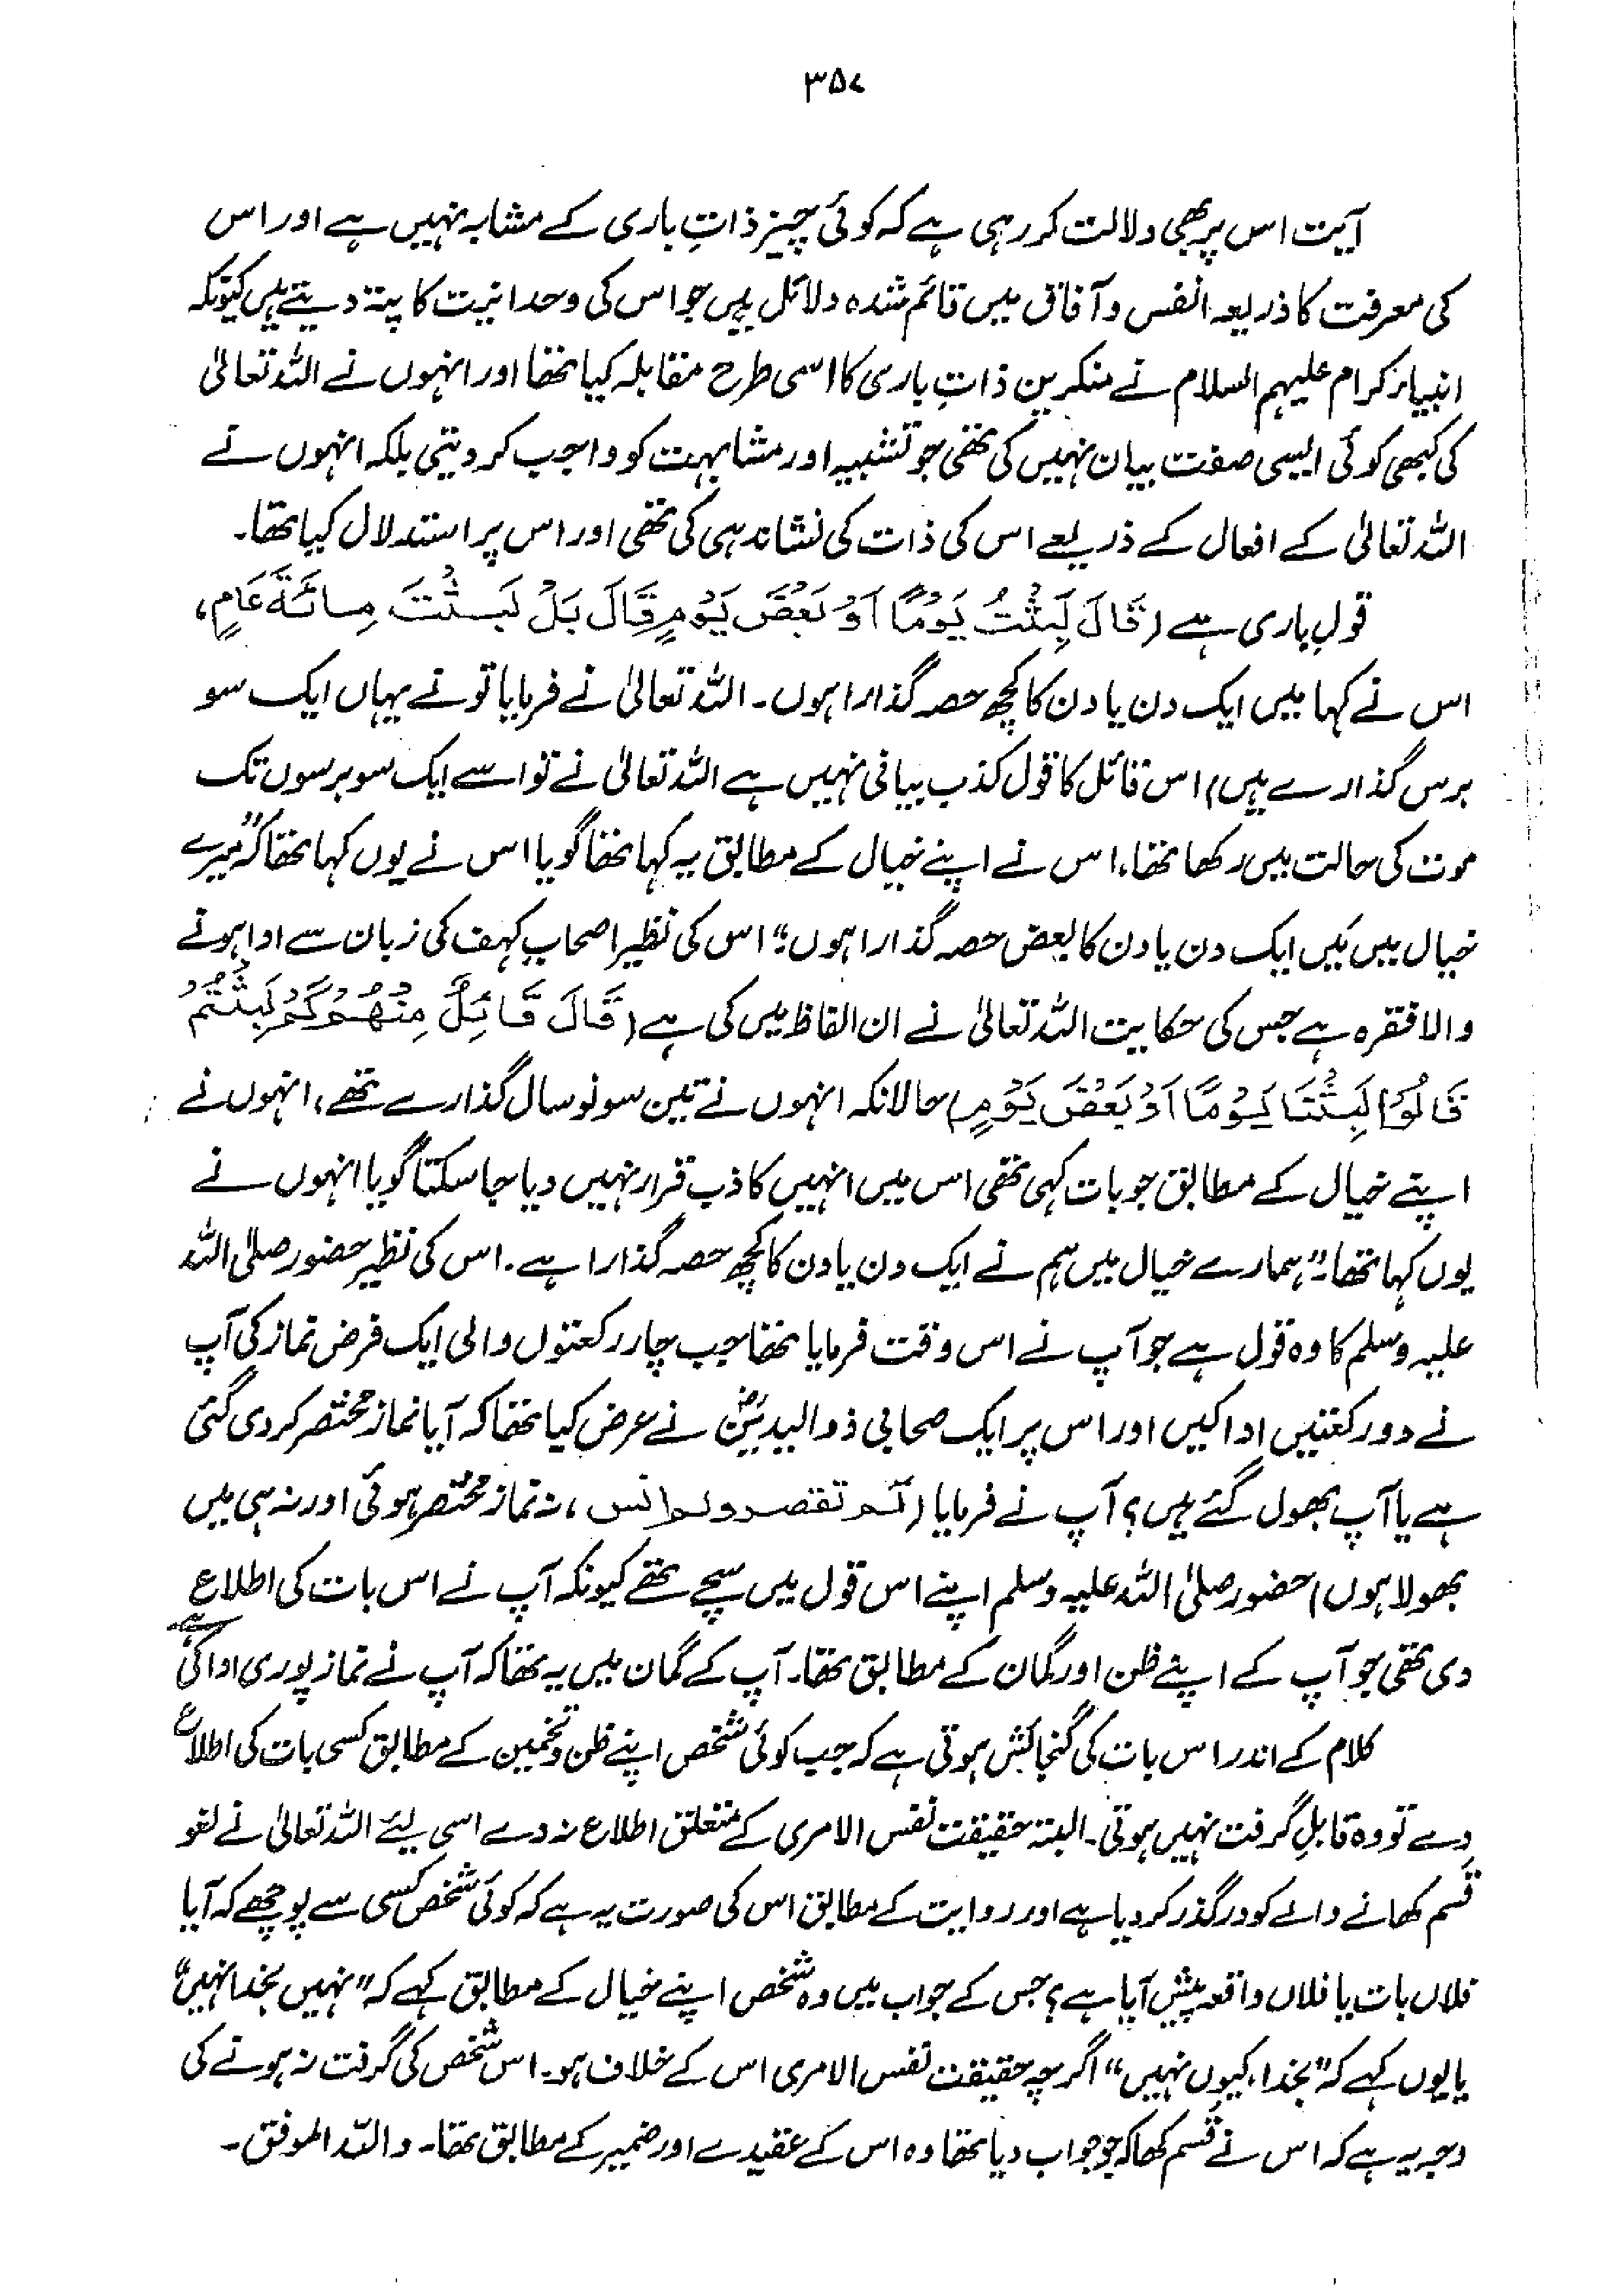 ۳۵۷
آیت اس پر بھی دلالت کر رہی ہے کہ کوئی چیز ذاتِ باری کے مشابہ نہیں ہے اور اس
کی معرفت کا ذریعہ انفس و آفاق میں قائم شدہ دلائل ہیں جو اس کی وحدانیت کا پتہ دیتے ہیں کیونکہ
انبیاء کرام علیہم السلام نے منکرین ذاتِ باری کا اسی طرح مقابلہ کیا تھا اور انہوں نے اللہ تعالیٰ
کی کبھی کوئی ایسی صفت بیان نہیں کی تھی جو تشبیہ اور مشابہت کو واجب کر دیتی بلکہ انہوں نے
اللہ تعالیٰ کے افعال کے ذریعے اس کی ذات کی نشاندہی کی تھی اور اس پر استدلال کیا تھا۔
قولِ باری ہے (قَالَ لَبِثْتُ يَوْمًا اَوْ بَعْضَ يَوْمٍ قَالَ بَلْ لَبِثْتَ مِائَةَ عَامٍ،
اس نے کہا میں ایک دن یا دن کا کچھ حصہ گذارا ہوں۔ اللہ تعالیٰ نے فرمایا تو نے یہاں ایک سو
برس گذارے ہیں) اس قائل کا قول کذب بیانی نہیں ہے اللہ تعالیٰ نے تو اسے ایک سو برسوں تک
موت کی حالت میں رکھا تھا، اس نے اپنے خیال کے مطابق یہ کہا تھا گویا اس نے یوں کہا تھا کہ "میرے
خیال میں مَیں ایک دن یا دن کا بعض حصہ گذارا ہوں؛" اس کی نظیر اصحابِ کہف کی زبان سے ادا ہونے
والا فقرہ ہے جس کی حکایت اللہ تعالیٰ نے ان الفاظ میں کی ہے (قَالَ قَائِلٌ مِنْهُمْ كَمْ لَبِثْتُمْ
قَالُوْا لَبِثْنَا يَوْمًا اَوْ بَعْضَ يَوْمٍ) حالانکہ انہوں نے تین سو نو سال گذارے تھے، انہوں نے
اپنے خیال کے مطابق جو بات کہی تھی اس میں انہیں کاذب قرار نہیں دیا جا سکتا گویا انہوں نے
یوں کہا تھا۔ "ہمارے خیال میں ہم نے ایک دن یا دن کا کچھ حصہ گذارا ہے۔ اس کی نظیر حضور صلی اللہ
علیہ وسلم کا وہ قول ہے جو آپ نے اس وقت فرمایا تھا جب چار رکعتوں والی ایک فرض نماز کی آپ
نے دو رکعتیں ادا کیں اور اس پر ایک صحابی ذوالیدینؓ نے عرض کیا تھا کہ آیا نماز مختصر کر دی گئی
ہے یا آپ بھول گئے ہیں؟ آپ نے فرمایا (لم تقصر ولم انس، نہ نماز مختصر ہوئی اور نہ ہی میں
بھولا ہوں) حضور صلی اللہ علیہ وسلم اپنے اس قول میں سچے تھے کیونکہ آپ نے اس بات کی اطلاع
دی تھی جو آپ کے اپنے ظن اور گمان کے مطابق تھا۔ آپ کے گمان میں یہ تھا کہ آپ نے نماز پوری ادا کی ہے
کلام کے اندر اس بات کی گنجائش ہوتی ہے کہ جب کوئی شخص اپنے ظن و تخمین کے مطابق کسی بات کی اطلاع
دے تو وہ قابلِ گرفت نہیں ہوتی۔ البتہ حقیقت نفس الامری کے متعلق اطلاع نہ دے اسی لیے اللہ تعالیٰ نے لغو
قسم کھانے والے کو درگذر کر دیا ہے اور روایت کے مطابق اس کی صورت یہ ہے کہ کوئی شخص کسی سے پوچھے کہ آیا
فلاں بات یا فلاں واقعہ پیش آیا ہے؟ جس کے جواب میں وہ شخص اپنے خیال کے مطابق کہے کہ "نہیں بخدا نہیں"
یا یوں کہے کہ "بخدا، کیوں نہیں" اگرچہ حقیقت نفس الامری اس کے خلاف ہو۔ اس شخص کی گرفت نہ ہونے کی
وجہ یہ ہے کہ اس نے قسم کھا کر جو جواب دیا تھا وہ اس کے عقیدے اور ضمیر کے مطابق تھا۔ واللہ الموفق۔